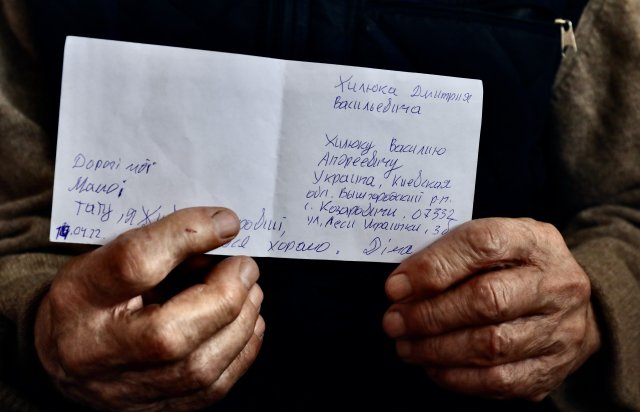 Хилюка Дмитрия
Васильевича
Хилюку Василию
Андреевичу
Украина, Киевская
обл. Вышгородский р.н.
с. Козаровичи, 07332
ул. Леси Украинки,
Дорогі мої
Мамо і
тату, я Жи ровий,
.04.22. все хорошо. Діма